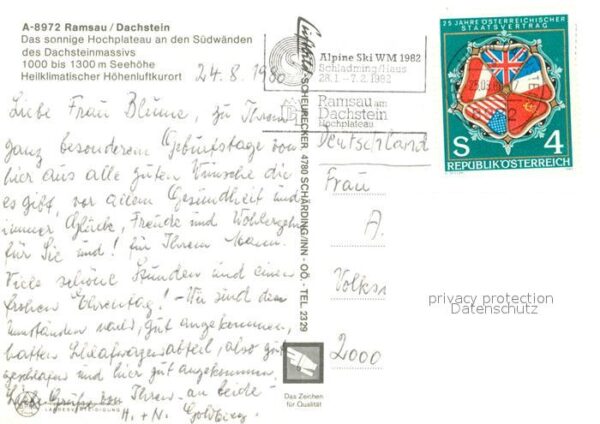 A-8972 Ramsau / Dachstein
Das sonnige Hochplateau an den Südwänden
des Dachsteinmassivs
1000 bis 1300 m Seehöhe
Heilklimatischer Höhenluftkurort
24.8.1980
Liebe Frau Blume, zu Ihrem
ganz besonderem Geburtstage von
hier aus alle guten Wünsche die
es gibt, vor allem Gesundheit und
immer Glück, Freude und Wohlergehn
für Sie und! für Ihrem Mann.
Viele schöne Stunden und einen
frohen Ehrentag! - Wir sind den
Umständen nach, gut angekommen,
hatten Schlafwagenabteil, also gut
geschlafen und hier gut angekommen.
Liebe Grüße von Ihren an beide
H. + N. Goldberg.
SCHEURECKER 4780 SCHÄRDING/INN - OÖ. - TEL 2329
Alpine Ski WM 1982
Schladming/Haus
28.1. - 7.2.1982
Ramsau am
Dachstein
Hochplateau
25 JAHRE ÖSTERREICHISCHER
STAATSVERTRAG
S 4
REPUBLIK ÖSTERREICH
Deutschland
Frau
A.
Volks
2000
privacy protection
Datenschutz
Das Zeichen
für Qualität